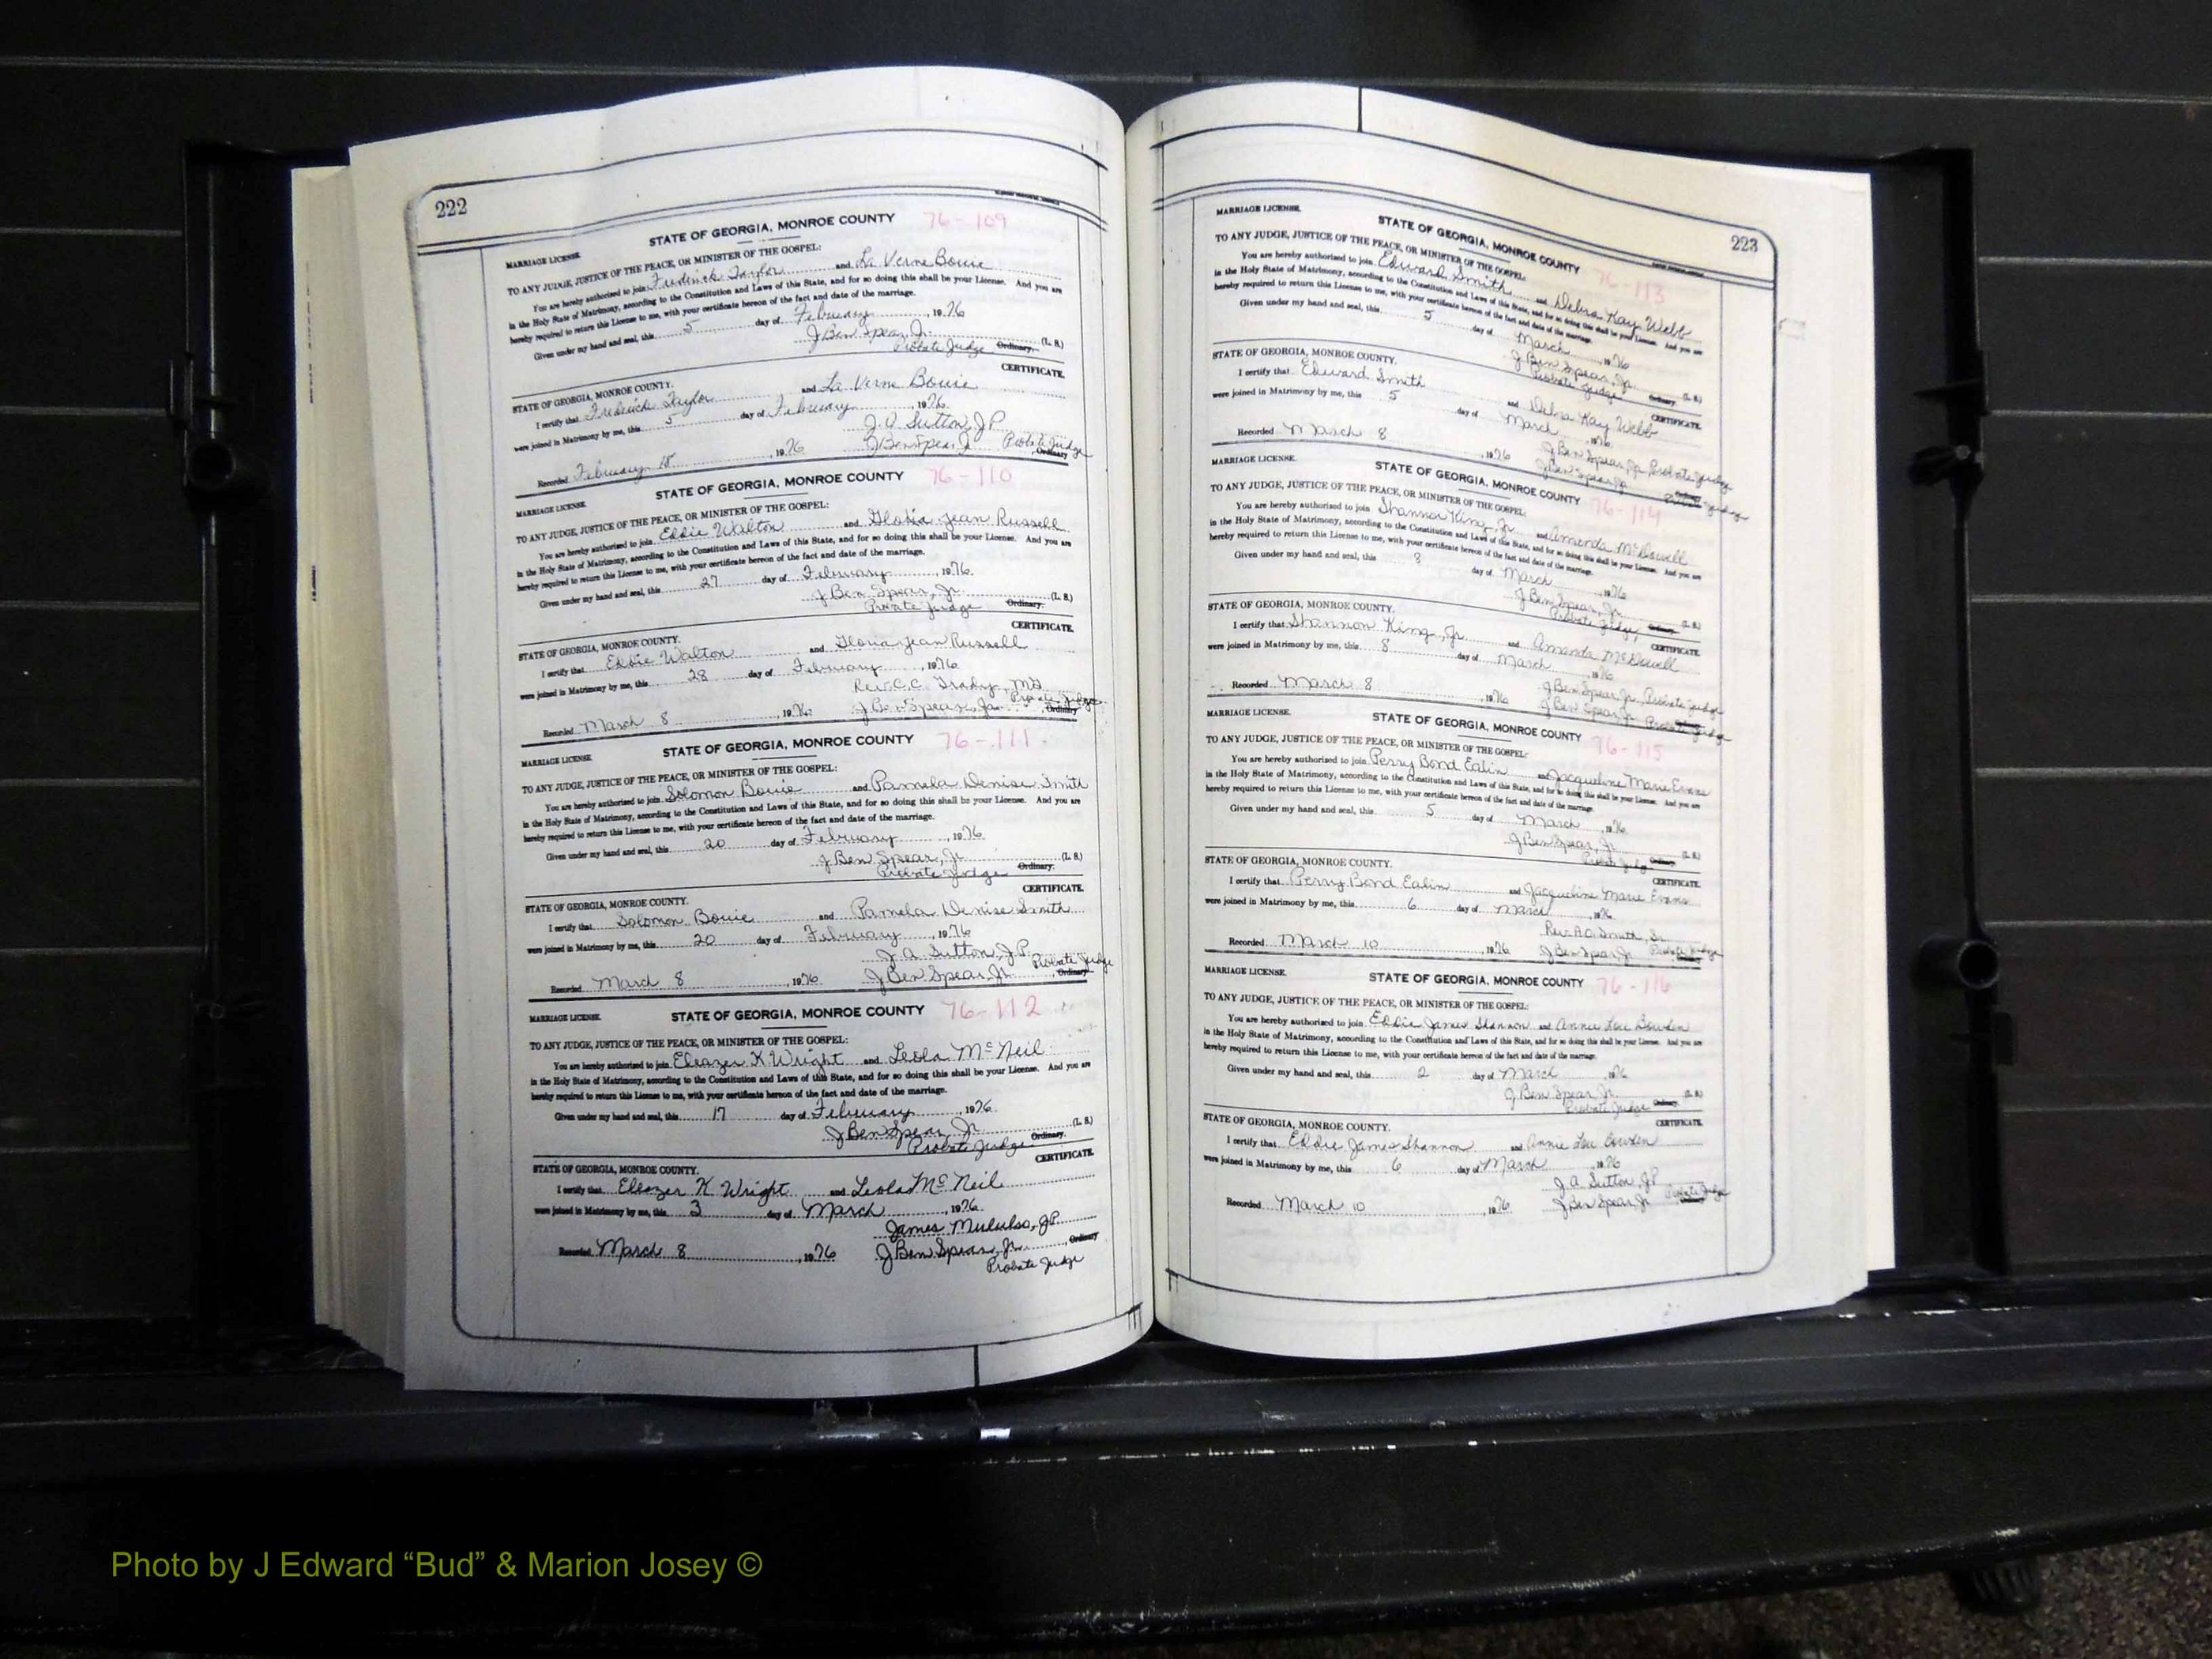 222
STATE OF GEORGIA, MONROE COUNTY 76-109
MARRIAGE LICENSE.
TO ANY JUDGE, JUSTICE OF THE PEACE, OR MINISTER OF THE GOSPEL:
You are hereby authorized to join Frederick Taylor and La Verne Bouie
in the Holy State of Matrimony, according to the Constitution and Laws of this State, and for so doing this shall be your License. And you are
hereby required to return this License to me, with your certificate hereon of the fact and date of the marriage.
Given under my hand and seal, this 5 day of February, 1976
J Ben Spear, Jr. (L. S.)
Probate Judge Ordinary.
CERTIFICATE.
STATE OF GEORGIA, MONROE COUNTY.
I certify that Frederick Taylor and La Verne Bouie
were joined in Matrimony by me, this 5 day of February, 1976.
J. A. Sutton, J.P.
Recorded February 18, 1976 J Ben Spear Jr Probate Judge Ordinary
STATE OF GEORGIA, MONROE COUNTY 76-110
MARRIAGE LICENSE
TO ANY JUDGE, JUSTICE OF THE PEACE, OR MINISTER OF THE GOSPEL:
You are hereby authorized to join Eddie Walton and Gloria Jean Russell
in the Holy State of Matrimony, according to the Constitution and Laws of this State, and for so doing this shall be your License. And you are
hereby required to return this License to me, with your certificate hereon of the fact and date of the marriage.
Given under my hand and seal, this 27 day of February, 1976.
J Ben Spear, Jr. (L. S.)
Probate Judge Ordinary.
CERTIFICATE.
STATE OF GEORGIA, MONROE COUNTY.
I certify that Eddie Walton and Gloria Jean Russell
were joined in Matrimony by me, this 28 day of February, 1976
Rev. C.C.
Recorded March 8, 1976 J Ben Spear, Jr. Probate Judge Ordinary
STATE OF GEORGIA, MONROE COUNTY 76-111
MARRIAGE LICENSE
TO ANY JUDGE, JUSTICE OF THE PEACE, OR MINISTER OF THE GOSPEL:
You are hereby authorized to join Solomon Bouie and Pamela Denise Smith
in the Holy State of Matrimony, according to the Constitution and Laws of this State, and for so doing this shall be your License. And you are
hereby required to return this License to me, with your certificate hereon of the fact and date of the marriage.
Given under my hand and seal, this 20 day of February, 1976
J Ben Spear, Jr (L. S.)
Probate Judge Ordinary.
CERTIFICATE.
STATE OF GEORGIA, MONROE COUNTY.
I certify that Solomon Bouie and Pamela Denise Smith
were joined in Matrimony by me, this 20 day of February, 1976
J. A. Sutton, J.P.
Recorded March 8, 1976 J Ben Spear, Jr. Probate Judge Ordinary
MARRIAGE LICENSE. STATE OF GEORGIA, MONROE COUNTY 76-112
TO ANY JUDGE, JUSTICE OF THE PEACE, OR MINISTER OF THE GOSPEL:
You are hereby authorized to join Eleazer K Wright and Leola McNeil
in the Holy State of Matrimony, according to the Constitution and Laws of this State, and for so doing this shall be your License. And you are
hereby required to return this License to me, with your certificate hereon of the fact and date of the marriage.
Given under my hand and seal, this 17 day of February, 1976.
J Ben Spear, Jr. (L. S.)
Probate Judge Ordinary.
CERTIFICATE.
STATE OF GEORGIA, MONROE COUNTY.
I certify that Eleazer K Wright and Leola McNeil
were joined in Matrimony by me, this 3 day of March, 1976.
James J.P.
Recorded March 8, 1976 J Ben Spear, Jr., Ordinary
Probate Judge
223
MARRIAGE LICENSE.
STATE OF GEORGIA, MONROE COUNTY 76-113
TO ANY JUDGE, JUSTICE OF THE PEACE, OR MINISTER OF THE GOSPEL:
You are hereby authorized to join Edward Smith and Debra Kay Webb
in the Holy State of Matrimony, according to the Constitution and Laws of this State, and for so doing this shall be your License. And you are
hereby required to return this License to me, with your certificate hereon of the fact and date of the marriage.
Given under my hand and seal, this 5 day of March, 1976
J Ben Spear, Jr. (L. S.)
Probate Judge Ordinary.
STATE OF GEORGIA, MONROE COUNTY. CERTIFICATE.
I certify that Edward Smith and Debra Kay Webb
were joined in Matrimony by me, this 5 day of March, 1976
J Ben Spear, Jr, Probate Judge
Recorded March 8, 1976 J Ben Spear Jr Probate Judge
MARRIAGE LICENSE.
STATE OF GEORGIA, MONROE COUNTY 76-114
TO ANY JUDGE, JUSTICE OF THE PEACE, OR MINISTER OF THE GOSPEL:
You are hereby authorized to join Shannon King, Jr. and Amanda McDowell
in the Holy State of Matrimony, according to the Constitution and Laws of this State, and for so doing this shall be your License. And you are
hereby required to return this License to me, with your certificate hereon of the fact and date of the marriage.
Given under my hand and seal, this 8 day of March, 1976
J Ben Spear, Jr. (L. S.)
Probate Judge Ordinary.
STATE OF GEORGIA, MONROE COUNTY. CERTIFICATE.
I certify that Shannon King, Jr. and Amanda McDowell
were joined in Matrimony by me, this 8 day of March, 1976
J Ben Spear, Jr., Probate Judge
Recorded March 8, 1976 J Ben Spear Jr Probate Judge
MARRIAGE LICENSE.
STATE OF GEORGIA, MONROE COUNTY 76-115
TO ANY JUDGE, JUSTICE OF THE PEACE, OR MINISTER OF THE GOSPEL:
You are hereby authorized to join Perry Bond Ealin and Jacqueline Marie Evans
in the Holy State of Matrimony, according to the Constitution and Laws of this State, and for so doing this shall be your License. And you are
hereby required to return this License to me, with your certificate hereon of the fact and date of the marriage.
Given under my hand and seal, this 5 day of March, 1976
J Ben Spear, Jr (L. S.)
Probate Judge Ordinary.
STATE OF GEORGIA, MONROE COUNTY. CERTIFICATE.
I certify that Perry Bond Ealin and Jacqueline Marie Evans
were joined in Matrimony by me, this 6 day of March, 1976
Rev. A.O. Smith, Sr.
Recorded March 10, 1976 J Ben Spear Jr Probate Judge
MARRIAGE LICENSE.
STATE OF GEORGIA, MONROE COUNTY 76-116
TO ANY JUDGE, JUSTICE OF THE PEACE, OR MINISTER OF THE GOSPEL:
You are hereby authorized to join Eddie James Shannon and Annie Lou Bowden
in the Holy State of Matrimony, according to the Constitution and Laws of this State, and for so doing this shall be your License. And you are
hereby required to return this License to me, with your certificate hereon of the fact and date of the marriage.
Given under my hand and seal, this 2 day of March, 1976
J Ben Spear, Jr. (L. S.)
Probate Judge Ordinary.
STATE OF GEORGIA, MONROE COUNTY. CERTIFICATE.
I certify that Eddie James Shannon and Annie Lou Bowden
were joined in Matrimony by me, this 6 day of March, 1976
J. A. Sutton, JP
Recorded March 10, 1976 J Ben Spear Jr Probate Judge
Photo by J Edward “Bud” & Marion Josey ©